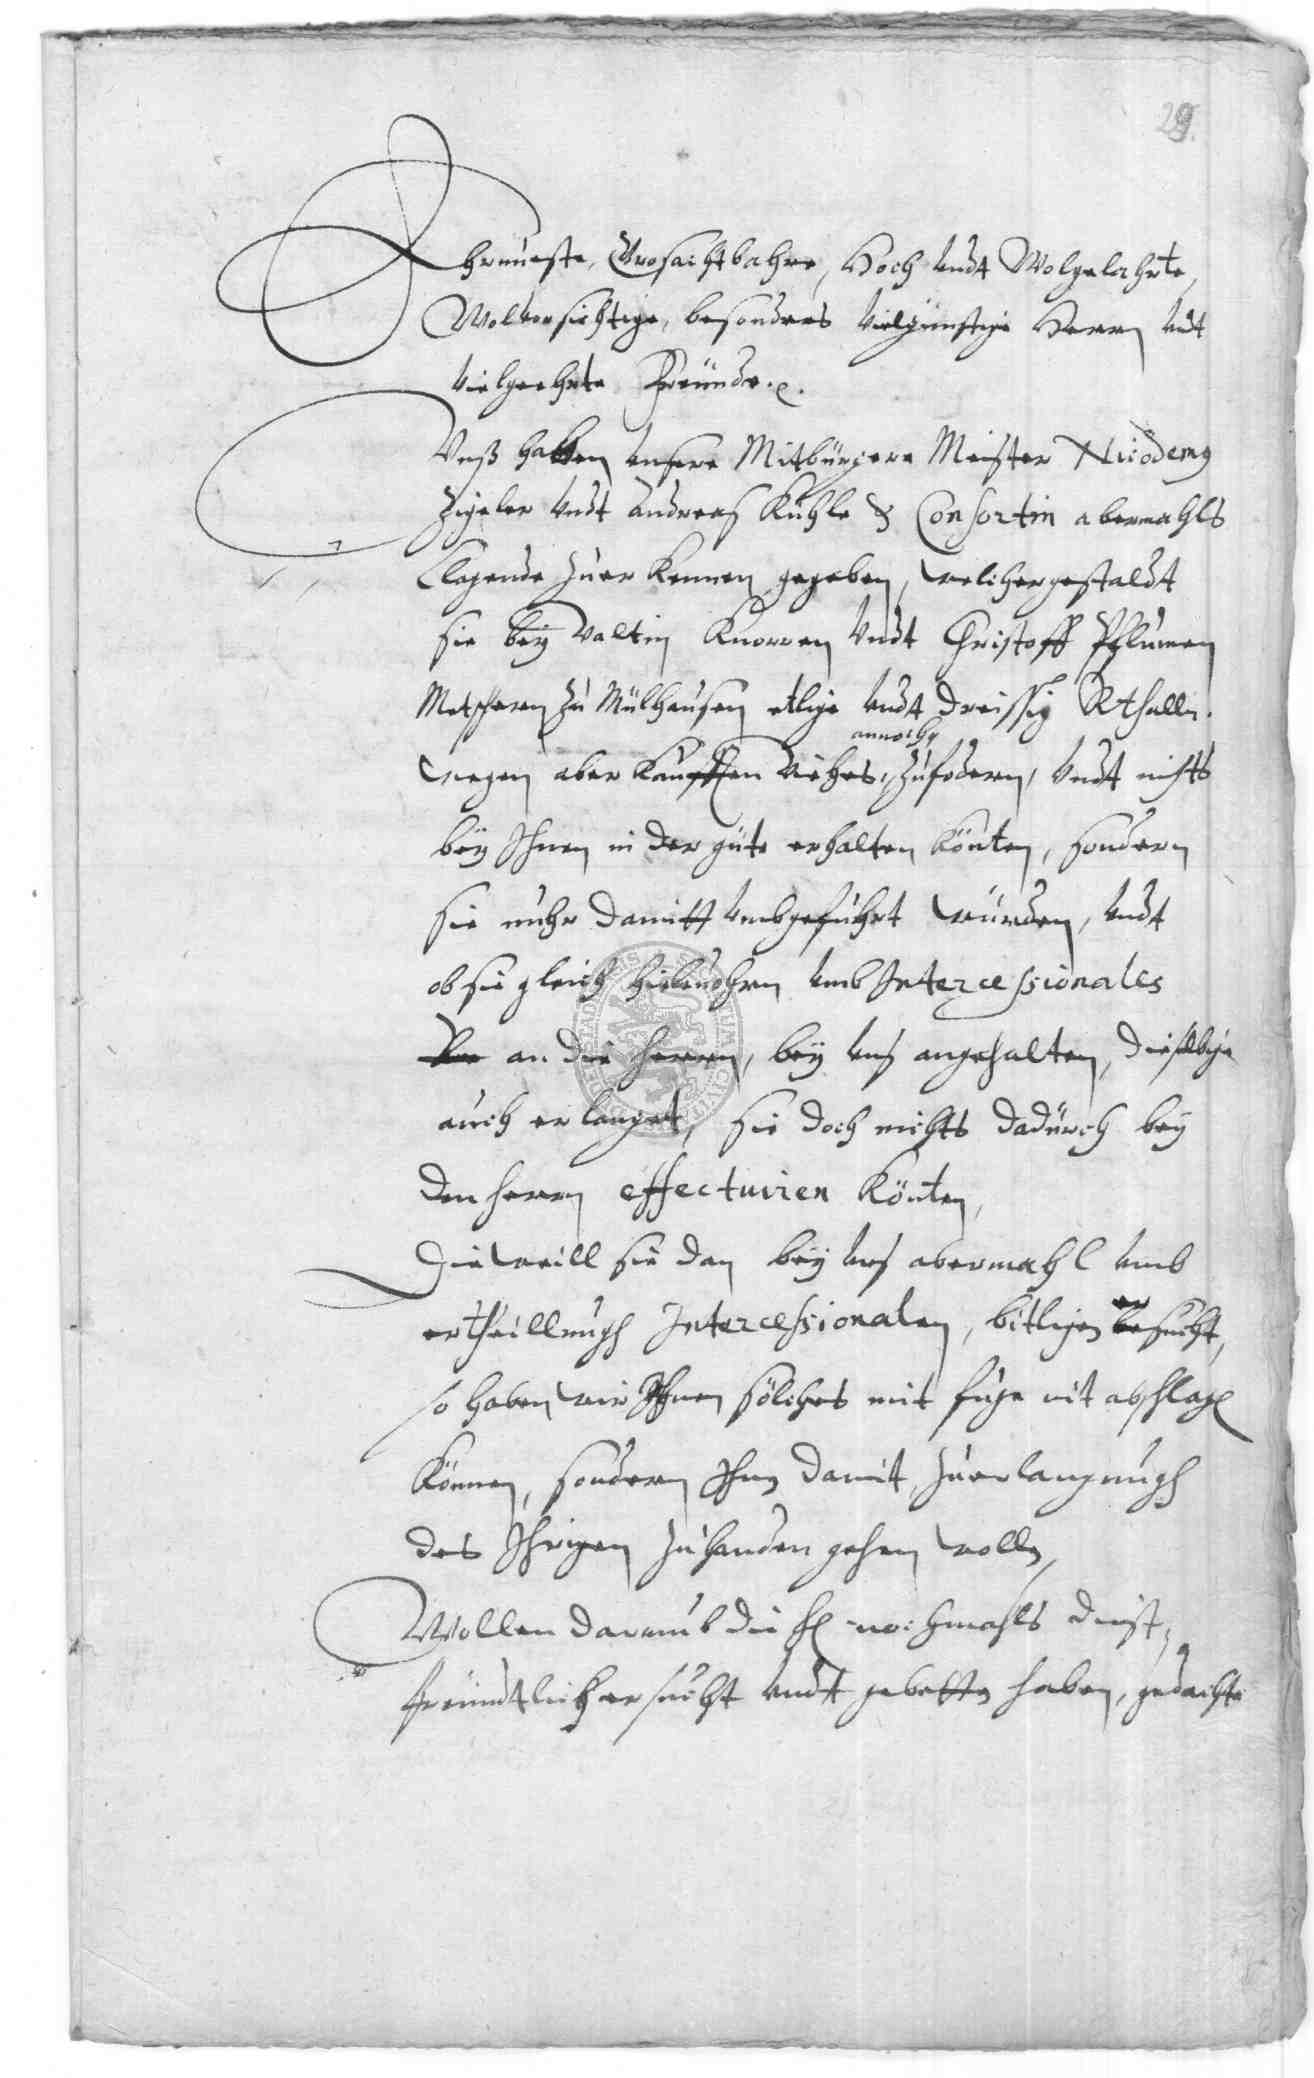 29.
Ehrnueste, Grosachtbahre, Hoch vndt Wolgelahrte,
Wolvorsichtige, besonders vielgünstige Herrn vndt
vielgeehrte Freünde.
Vnß haben vnsere Mitbürgere Meister Nicodemg
Zigeler vndt Andreas Kühle & Consorten abermahls
Clagende zuerkennen gegeben, welchergestaldt
sie bey Valtin Knorren vndt Christoff Pflumen
Metschern zu Mülhausen etlige vndt dreissig Rthalln.
annoch
wegen aber kaufften viehes, zufodern, vndt nichts
bey Ihnen in der güte erhalten könten, sondern
sie nuhr damitt vmbgeführt würden, vndt
ob sie gleich hiebeuohrn vmb Intercessionales
an die herrn, bey vns angehalten, dieselbige
auch erlanget, sie doch nichts dadürch bey
den herrn effectuiren könten,
Dieweill sie dan bey vns abermahl vmb
ertheillungh Intercessionalen, bitligen
er
besucht,
so haben wir Ihnen sölches mit fuge nit abschlagen
können, sondern Ihnen damit zuerlangungh
des Ihrigen zuhanden gehen wolln,
Wollen darumb die hn nochmahls dinst,
freundtlich ersucht vndt gebetten haben, gedachte